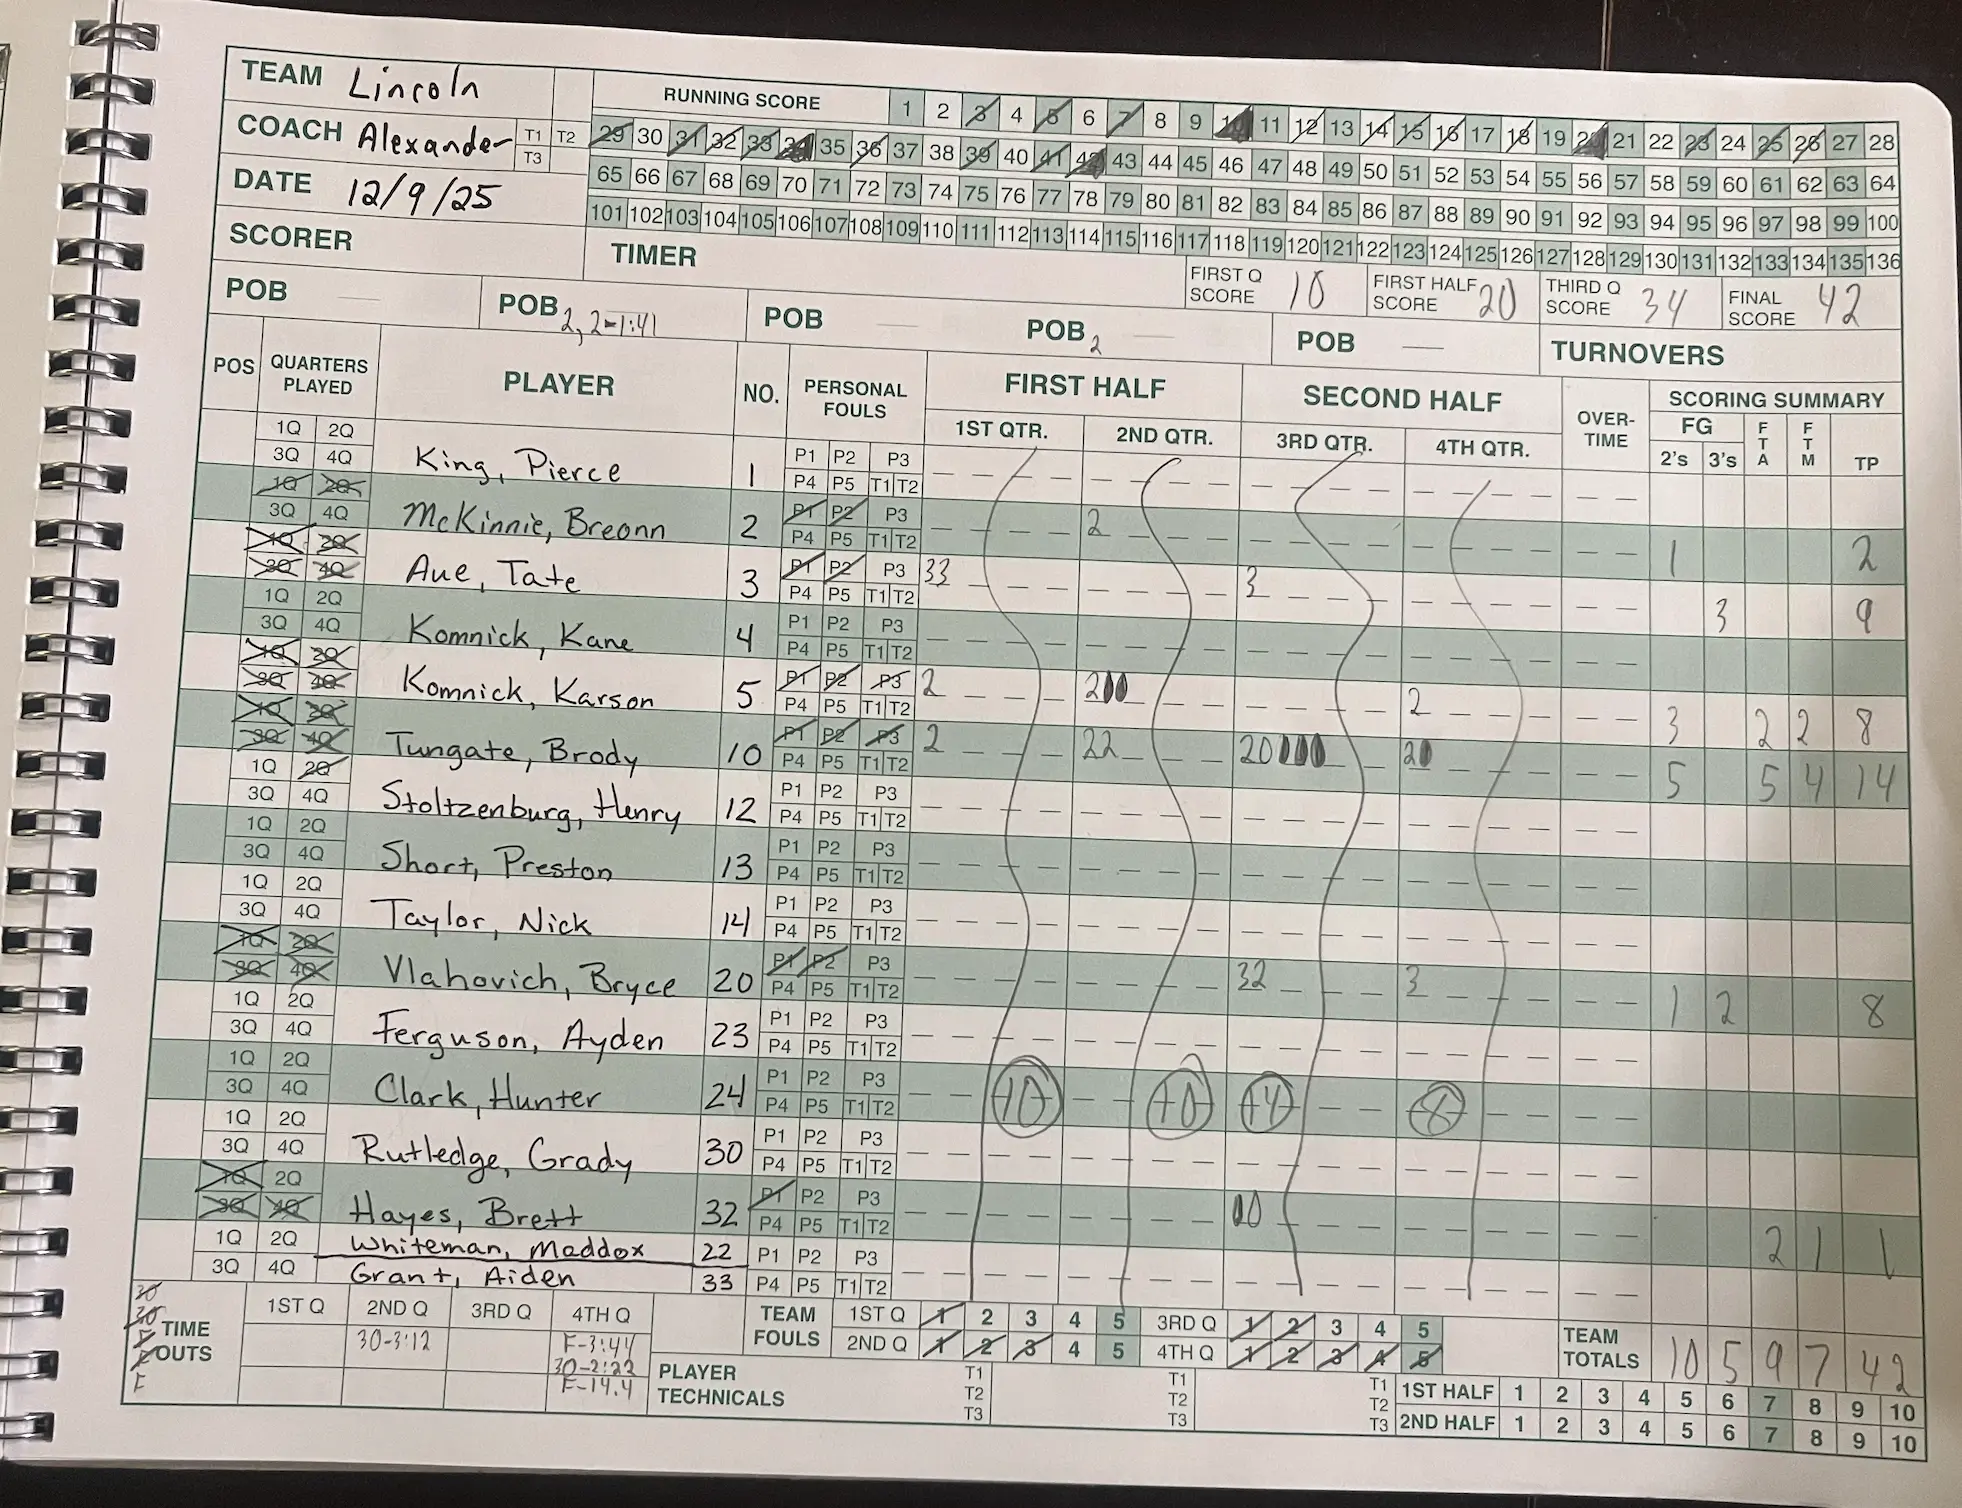 TEAM Lincoln
RUNNING SCORE 1 2 3 4 5 6 7 8 9 10 11 12 13 14 15 16 17 18 19 20 21 22 23 24 25 26 27 28
COACH Alexander T1 T2 T3
29 30 31 32 33 34 35 36 37 38 39 40 41 42 43 44 45 46 47 48 49 50 51 52 53 54 55 56 57 58 59 60 61 62 63 64
DATE 12/9/25
65 66 67 68 69 70 71 72 73 74 75 76 77 78 79 80 81 82 83 84 85 86 87 88 89 90 91 92 93 94 95 96 97 98 99 100
101 102 103 104 105 106 107 108 109 110 111 112 113 114 115 116 117 118 119 120 121 122 123 124 125 126 127 128 129 130 131 132 133 134 135 136
SCORER TIMER
FIRST Q SCORE 10 FIRST HALF SCORE 20 THIRD Q SCORE 34 FINAL SCORE 42
POB POB 2, 2-1:41 POB POB 2 POB TURNOVERS
POS QUARTERS PLAYED PLAYER NO. PERSONAL FOULS FIRST HALF SECOND HALF OVER-TIME SCORING SUMMARY
1ST QTR. 2ND QTR. 3RD QTR. 4TH QTR. FG 2's 3's FTA FTM TP
1Q 2Q 3Q 4Q King, Pierce 1 P1 P2 P3 P4 P5 T1 T2
1Q 2Q 3Q 4Q McKinnie, Breonn 2 P1 P2 P3 P4 P5 T1 T2 2 1 2
1Q 2Q 3Q 4Q Aue, Tate 3 P1 P2 P3 P4 P5 T1 T2 33 3 3 9
1Q 2Q 3Q 4Q Komnick, Kane 4 P1 P2 P3 P4 P5 T1 T2
1Q 2Q 3Q 4Q Komnick, Karson 5 P1 P2 P3 P4 P5 T1 T2 2 200 2 3 2 2 8
1Q 2Q 3Q 4Q Tungate, Brody 10 P1 P2 P3 P4 P5 T1 T2 2 22 20000 20 5 5 4 14
1Q 2Q 3Q 4Q Stoltzenburg, Henry 12 P1 P2 P3 P4 P5 T1 T2
1Q 2Q 3Q 4Q Short, Preston 13 P1 P2 P3 P4 P5 T1 T2
1Q 2Q 3Q 4Q Taylor, Nick 14 P1 P2 P3 P4 P5 T1 T2
1Q 2Q 3Q 4Q Vlahovich, Bryce 20 P1 P2 P3 P4 P5 T1 T2 32 3 1 2 8
1Q 2Q 3Q 4Q Ferguson, Ayden 23 P1 P2 P3 P4 P5 T1 T2
1Q 2Q 3Q 4Q Clark, Hunter 24 P1 P2 P3 P4 P5 T1 T2 10 10 14 8
1Q 2Q 3Q 4Q Rutledge, Grady 30 P1 P2 P3 P4 P5 T1 T2
1Q 2Q 3Q 4Q Hayes, Brett 32 P1 P2 P3 P4 P5 T1 T2 00 2 1 1
1Q 2Q Whiteman, Maddox 22 P1 P2 P3
3Q 4Q Grant, Aiden 33 P4 P5 T1 T2
30 30 F F F TIME OUTS 1ST Q 2ND Q 3RD Q 4TH Q
30-3:12 F-3:44
30-2:22
F-14.4
TEAM FOULS 1ST Q 1 2 3 4 5 3RD Q 1 2 3 4 5
2ND Q 1 2 3 4 5 4TH Q 1 2 3 4 5
TEAM TOTALS 10 5 9 7 42
PLAYER TECHNICALS T1 T2 T3 T1 T2 T3 T1 T2 T3
1ST HALF 1 2 3 4 5 6 7 8 9 10
2ND HALF 1 2 3 4 5 6 7 8 9 10